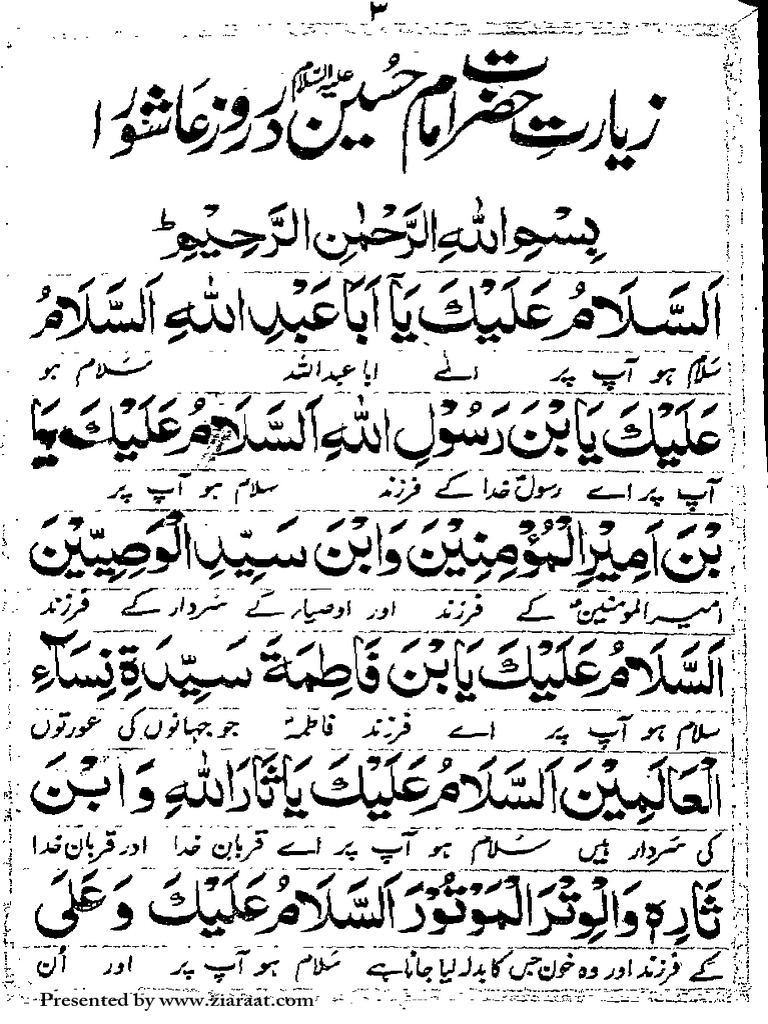 ٣
زیارتِ حضرت امام حسین علیہ السلام در روز عاشورا
بِسْمِ اللهِ الرَّحْمٰنِ الرَّحِیْمِ ؕ
اَلسَّلَامُ عَلَیْكَ یَآ اَبَا عَبْدِ اللهِ اَلسَّلَامُ
سَلام ہو آپ پر اے ابا عبداللہ سَلام ہو
عَلَیْكَ یَا بْنَ رَسُوْلِ اللهِ اَلسَّلَامُ عَلَیْكَ یَا
آپ پر اے رسولؐ خدا کے فرزند سلام ہو آپ پر
بْنَ اَمِیْرِ الْمُؤْمِنِیْنَ وَابْنَ سَیِّدِ الْوَصِیِّیْنَ
امیرالمومنینؑ کے فرزند اور اوصیار کے سَردار کے فرزند
اَلسَّلَامُ عَلَیْكَ یَا بْنَ فَاطِمَةَ سَیِّدَةِ نِسَآءِ
سلام ہو آپ پر اے فرزند فاطمہؑ جو جہانوں کی عورتوں
الْعَالَمِیْنَ اَلسَّلَامُ عَلَیْكَ یَا ثَارَ اللهِ وَ ابْنَ
کی سَردار ہیں سَلام ہو آپ پر اے قربانِ خدا اور قربانِ خدا
ثَارِهٖ وَالْوِتْرَ الْمَوْتُوْرَ اَلسَّلَامُ عَلَیْكَ وَ عَلَی
کے فرزند اور وہ خون جس کا بدلہ لیا جانا ہے سَلام ہو آپ پر اور اُن
Presented by www.ziaraat.com